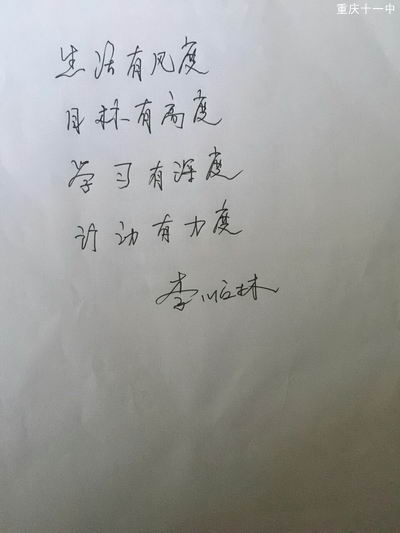 重庆十一中
生活有风度
目标有高度
学习有深度
行动有力度
李顺林